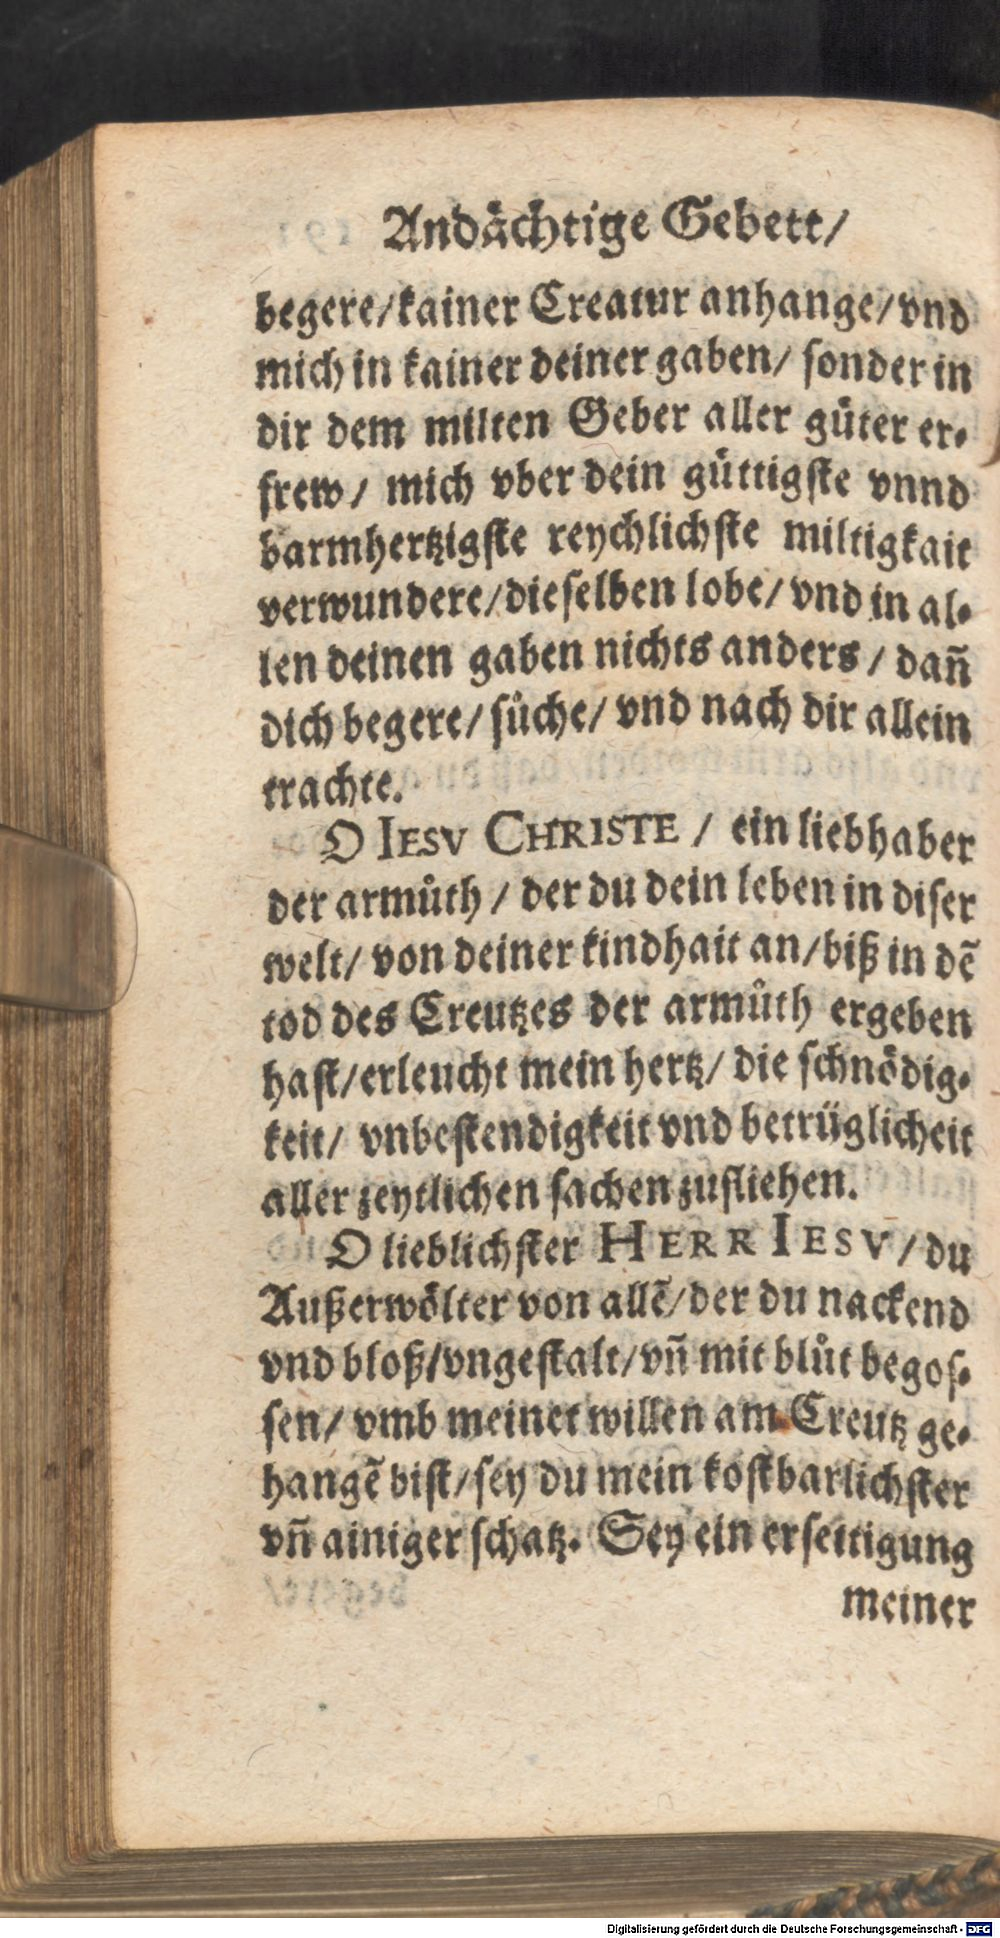 Andächtige Gebett/
begere/kainer Creatur anhange/vnd
mich in kainer deiner gaben/ sonder in
dir dem milten Geber aller güter er-
frew/ mich vber dein güttigste vnnd
barmhertzigste reychlichste miltigkait
verwundere/dieselben lobe/ vnd in al-
len deinen gaben nichts anders / dañ
dich begere/ sůche/ vnd nach dir allein
trachte.
O IESV CHRISTE / ein liebhaber
der armůth / der du dein leben in diser
welt/ von deiner kindhait an/biß in dẽ
tod des Creutzes der armůth ergeben
hast/erleucht mein hertz/ die schnödig-
keit/ vnbestendigkeit vnd betrüglicheit
aller zeytlichen sachen zufliehen.
O lieblichster HERR IESV/du
Außerwölter von allẽ/der du nackend
vnd bloß/vngestalt/vñ mit blůt begos-
sen/ vmb meinet willen am Creutz ge-
hangẽ bist/sey du mein kostbarlichster
vñ ainiger schatz. Sey ein ersettigung
meiner
Digitalisierung gefördert durch die Deutsche Forschungsgemeinschaft - DFG